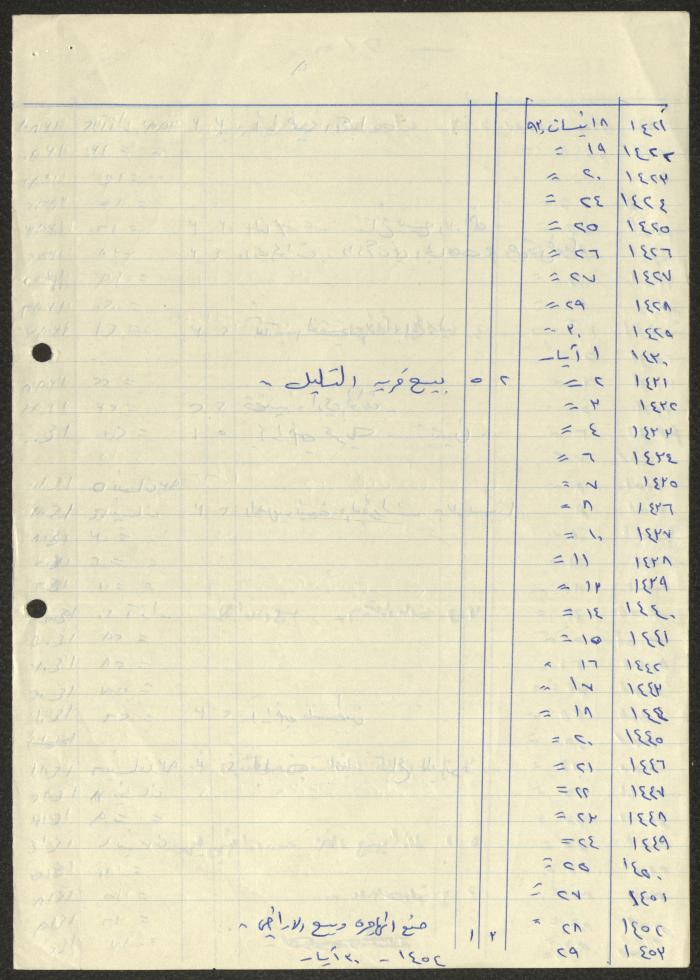 ١٤٢١ ١٨ نيسان ٩٣
١٤٢٢ ١٩ =
١٤٢٣ ٢٠ =
١٤٢٤ ٢٤ =
١٤٢٥ ٢٥ =
١٤٢٦ ٢٦ =
١٤٢٧ ٢٧ =
١٤٢٨ ٢٩ =
١٤٢٩ ٣٠ =
١٤٣٠ ١ أيار
١٤٣١ ٢ = ٣ ٥ بيع قرية التليل "
١٤٣٢ ٣ =
١٤٣٣ ٤ =
١٤٣٤ ٦ =
١٤٣٥ ٧ =
١٤٣٦ ٨ =
١٤٣٧ ١٠ =
١٤٣٨ ١١ =
١٤٣٩ ١٢ =
١٤٤٠ ١٤ =
١٤٤١ ١٥ =
١٤٤٢ ١٦ "
١٤٤٣ ١٧ "
١٤٤٤ ١٨ =
١٤٤٥ ٢٠ =
١٤٤٦ ٢١ =
١٤٤٧ ٢٢ =
١٤٤٨ ٢٣ =
١٤٤٩ ٢٤ =
١٤٥٠ ٢٥ =
١٤٥١ ٢٧ =
١٤٥٢ ٢٨ " ٣ ١ منع الهجرة وبيع الاراضي "
١٤٥٣ ٢٩
١٤٥٤ - ٣٠ أيار